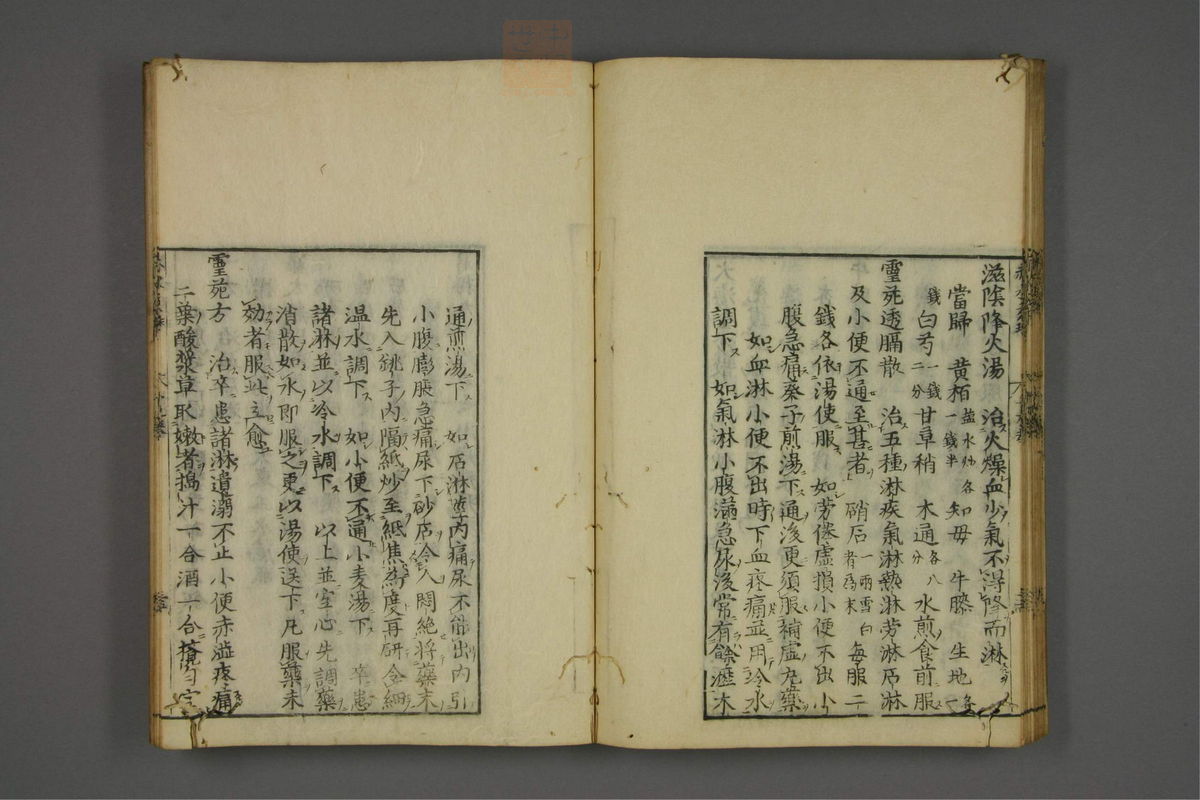 滋陰降火湯　治火燥血少氣不得降而淋
當歸　黄栢塩水炒各一錢半　知母　牛膝　生地各一
錢　白芍一錢二分　甘草稍　木通各八分　水煎食前服
靈苑透膈散　治五種淋疾氣淋熱淋労淋石淋
及小便不通至甚者　硝石一两雪白者為末　每服二
錢各依湯使服　如労倦虚損小便不出小
腹急痛葵子煎湯下通後更須服補虚丸藥
如血淋小便不出時下血疼痛並用冷水
調下　如氣淋小腹満急尿後常有餘瀝木
通煎湯下　如石淋莖内痛尿不能出内引
小腹膨脹急痛尿下砂石令人悶絶将藥末
先入銚子内隔紙炒至紙焦為度再研令細
温水調下　如小便不通小麦湯下　卒患
諸淋並以冷水調下　以上並空心先調藥
消散如水即服之更以湯使送下凡服藥未
効者服此立愈
靈苑方　治卒患諸淋遺溺不止小便赤澁疼痛
三葉酸漿草取嫩者搗汁一合酒一合攪勻空